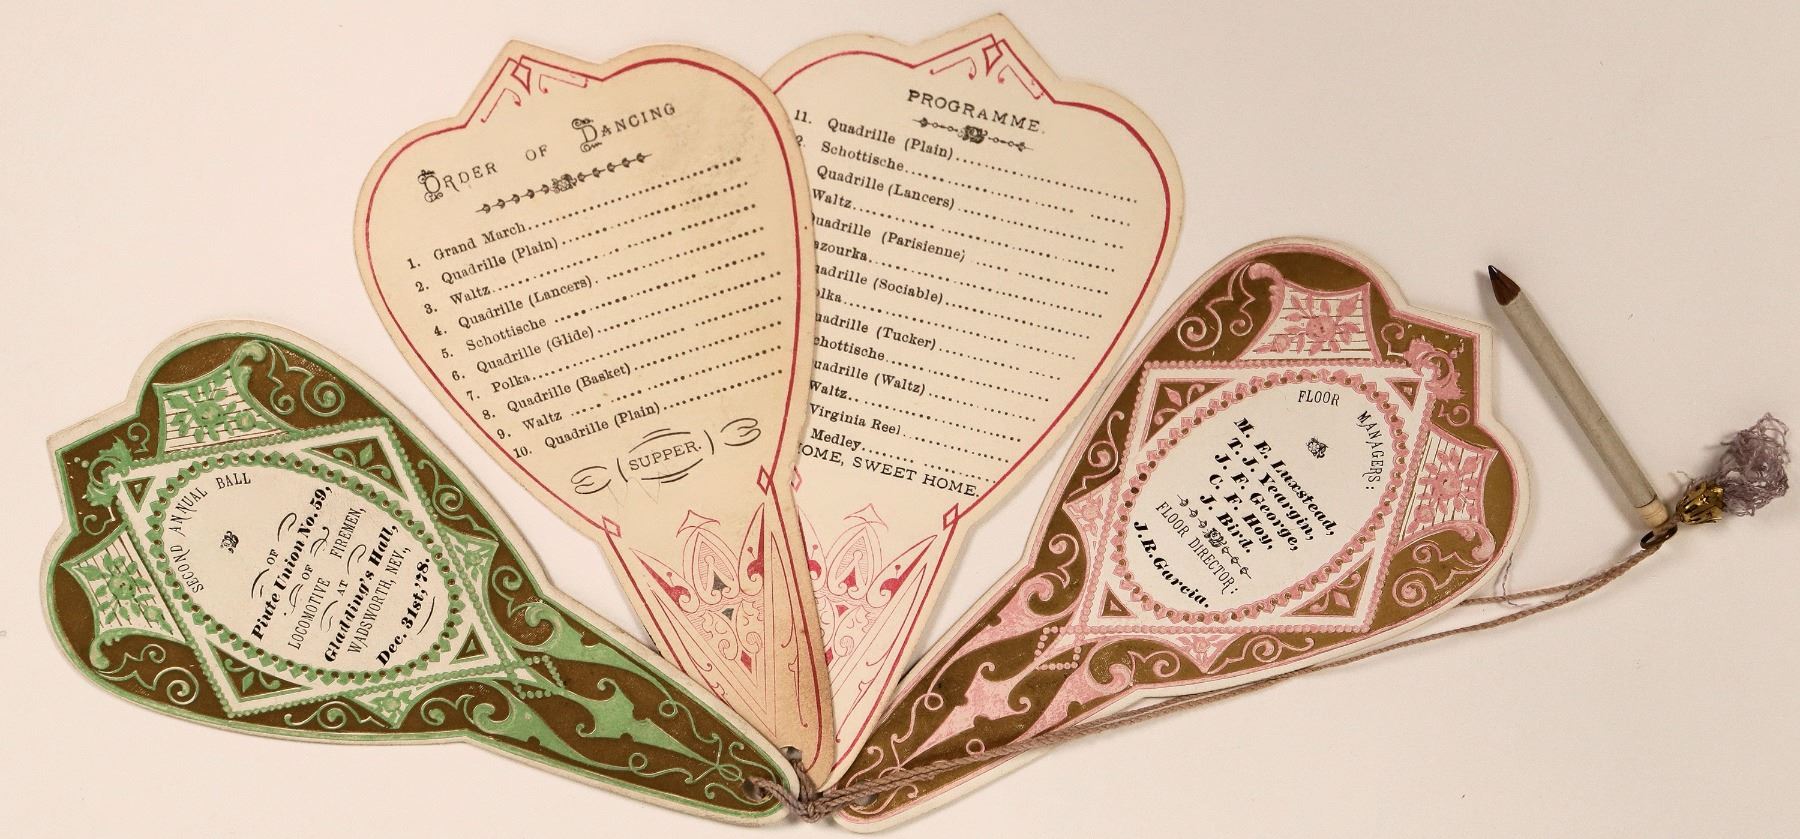 SECOND ANNUAL BALL
OF
Piute Union No. 59,
OF
LOCOMOTIVE FIREMEN,
AT
Gladding's Hall,
WADSWORTH, NEV.,
Dec. 31st, '78.
ORDER OF DANCING
1. Grand March
2. Quadrille (Plain)
3. Waltz
4. Quadrille (Lancers)
5. Schottische
6. Quadrille (Glide)
7. Polka
8. Quadrille (Basket)
9. Waltz
10. Quadrille (Plain)
(SUPPER.)
PROGRAMME.
11. Quadrille (Plain)
2. Schottische
Quadrille (Lancers)
Waltz
uadrille (Parisienne;
azourka
uadrille (Sociable)
olka
uadrille (Tucker)
chottische
uadrille (Waltz)
Waltz
Virginia Reel
Medley
OME, SWEET HOME.
FLOOR MANAGERS:
M. E. Luxstead,
T. J. Yeargin,
J. F. George,
C. F. Hoy,
J. Bird.
FLOOR DIRECTOR:
J. R. Garcia.